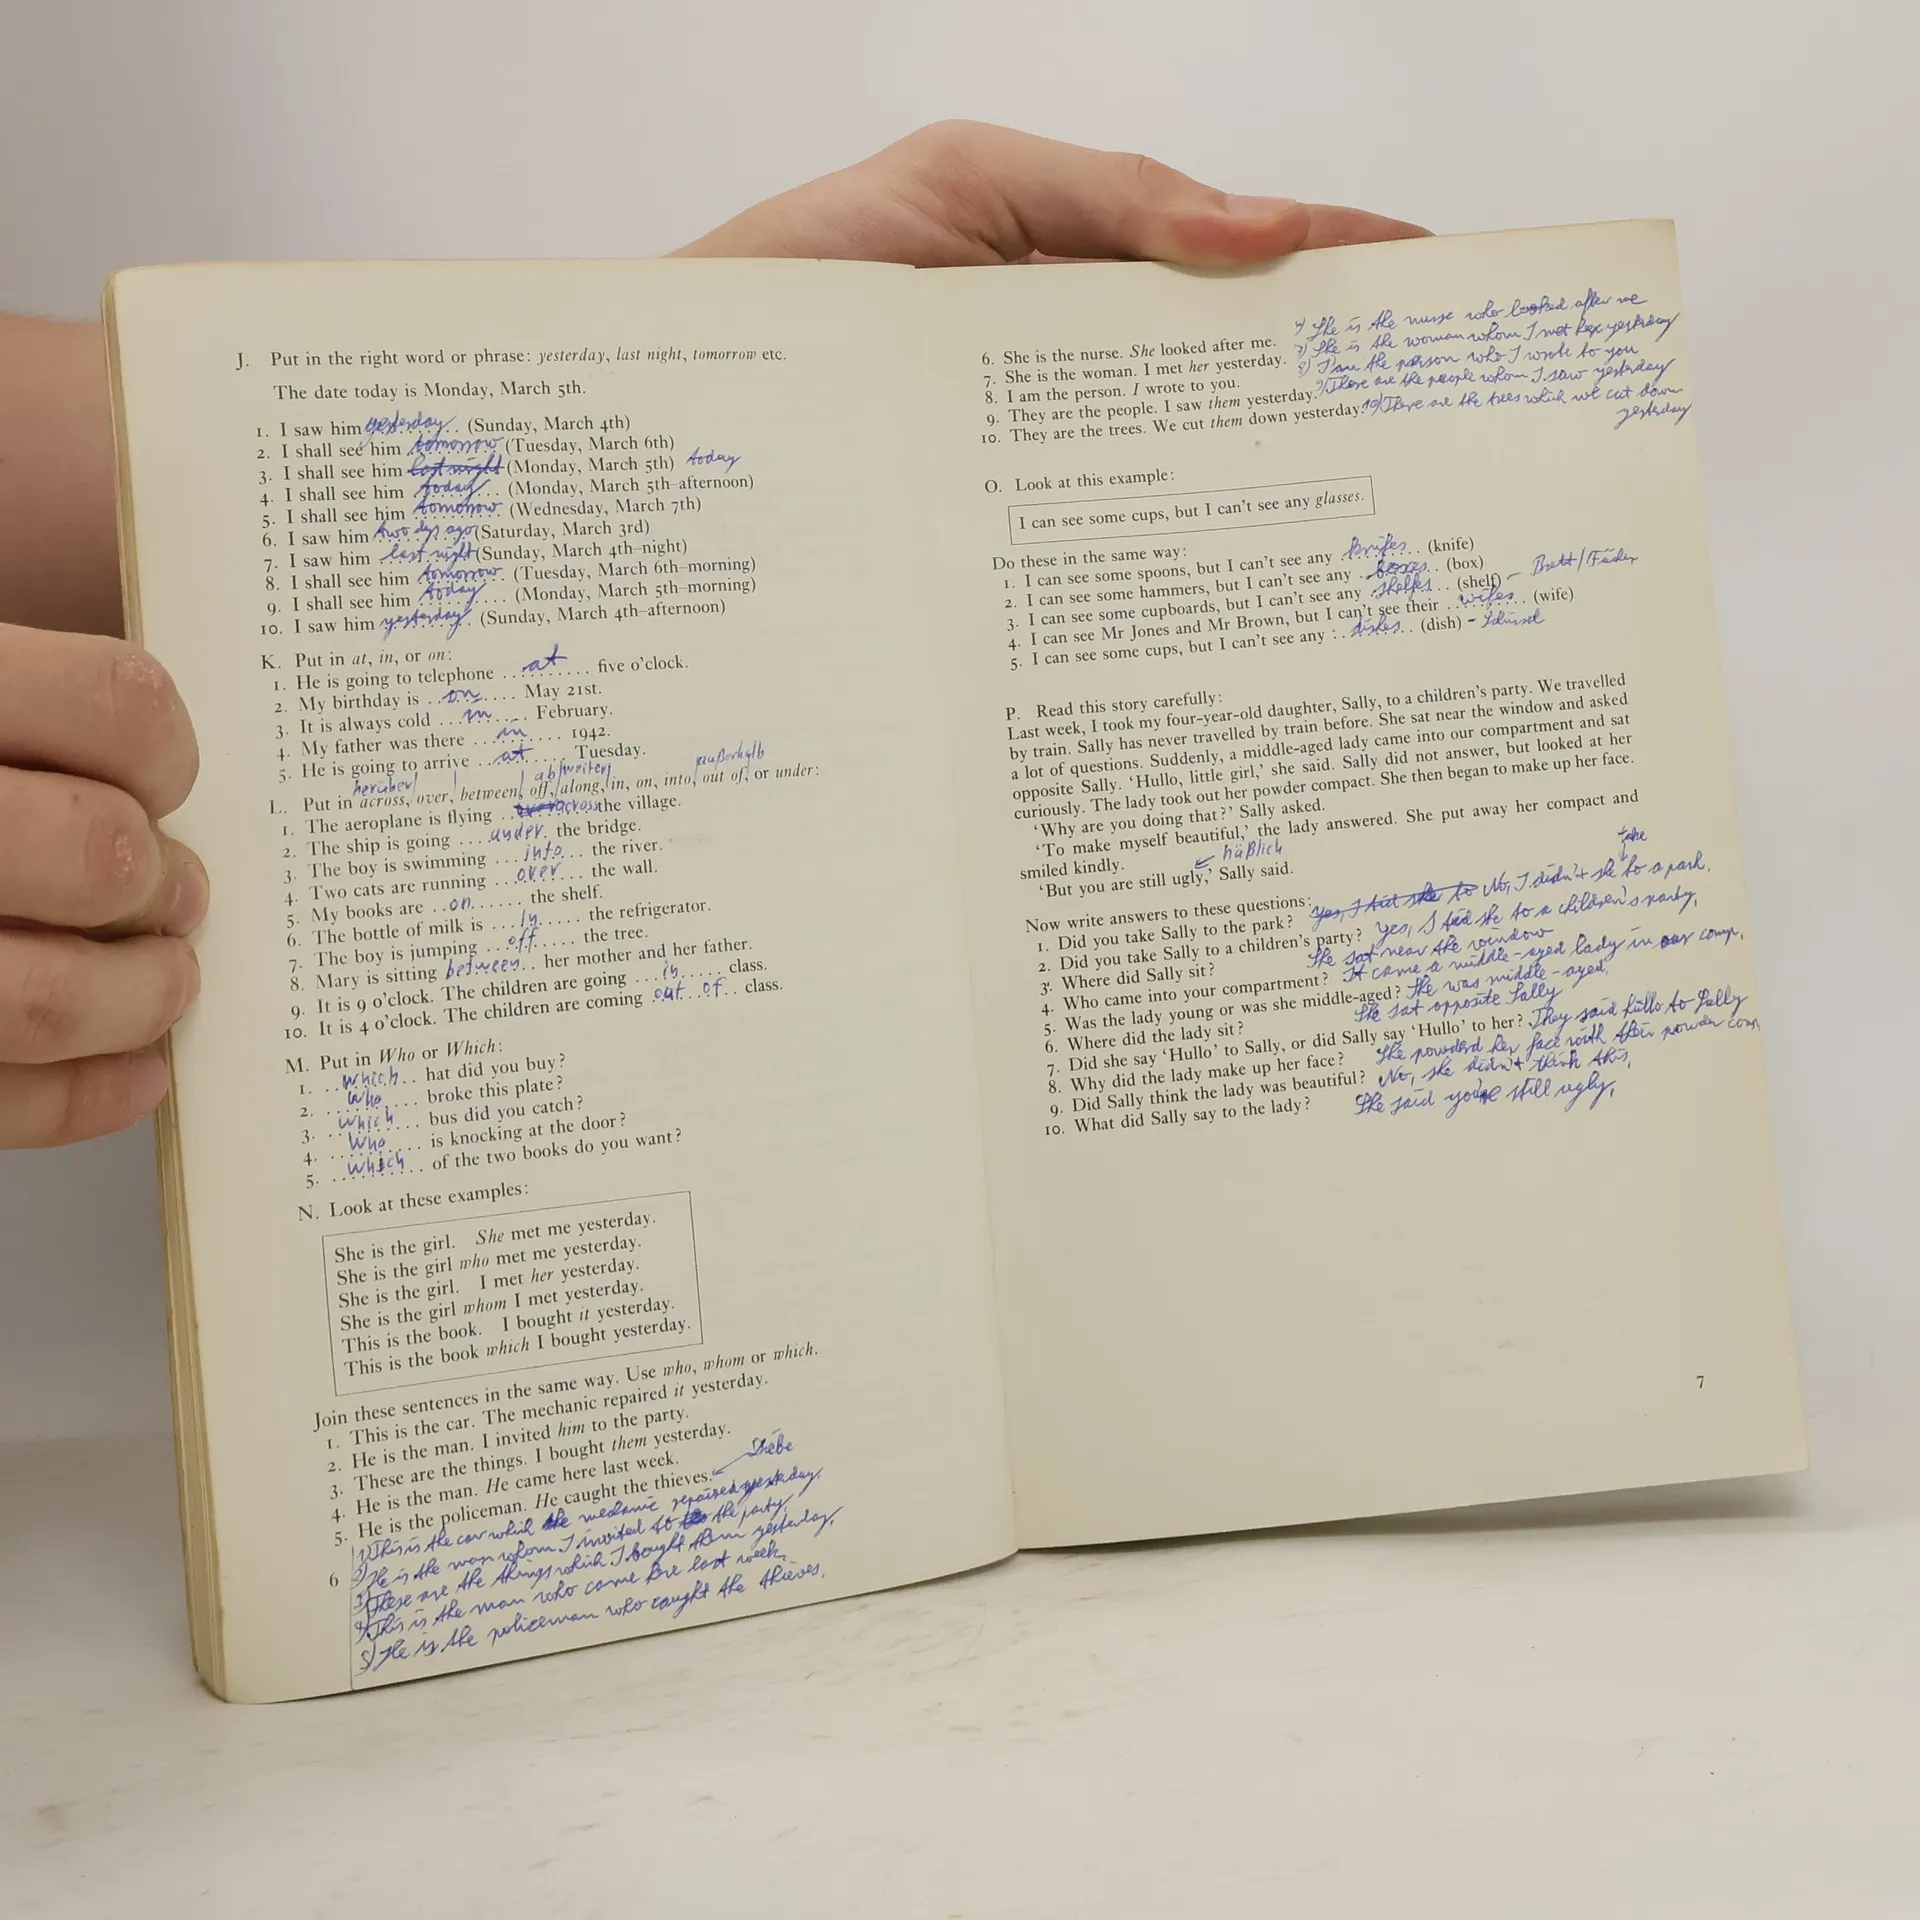 J. Put in the right word or phrase: yesterday, last night, tomorrow etc.
The date today is Monday, March 5th.
1. I saw him yesterday (Sunday, March 4th)
2. I shall see him tomorrow (Tuesday, March 6th)
3. I shall see him last night (Monday, March 5th) today
4. I shall see him today (Monday, March 5th–afternoon)
5. I shall see him tomorrow (Wednesday, March 7th)
6. I saw him two ago (Saturday, March 3rd)
7. I saw him last night (Sunday, March 4th–night)
8. I shall see him tomorrow (Tuesday, March 6th–morning)
9. I shall see him today (Monday, March 5th–morning)
10. I saw him yesterday (Sunday, March 4th–afternoon)
K. Put in at, in, or on:
1. He is going to telephone at five o'clock.
2. My birthday is on May 21st.
3. It is always cold in February.
4. My father was there in 1942.
5. He is going to arrive at Tuesday.
herüber ab/weiter außerhalb
L. Put in across, over, between, off, along, in, on, into, out of, or under:
1. The aeroplane is flying over across the village.
2. The ship is going under the bridge.
3. The boy is swimming into the river.
4. Two cats are running over the wall.
5. My books are on the shelf.
6. The bottle of milk is in the refrigerator.
7. The boy is jumping off the tree.
8. Mary is sitting between her mother and her father.
9. It is 9 o'clock. The children are going in class.
10. It is 4 o'clock. The children are coming out of class.
M. Put in Who or Which:
1. Which hat did you buy?
2. Who broke this plate?
3. which bus did you catch?
4. Who is knocking at the door?
5. which of the two books do you want?
N. Look at these examples:
She is the girl. She met me yesterday.
She is the girl who met me yesterday.
She is the girl. I met her yesterday.
She is the girl whom I met yesterday.
This is the book. I bought it yesterday.
This is the book which I bought yesterday.
Join these sentences in the same way. Use who, whom or which.
1. This is the car. The mechanic repaired it yesterday.
2. He is the man. I invited him to the party.
3. These are the things. I bought them yesterday.
4. He is the man. He came here last week.
5. He is the policeman. He caught the thieves. Diebe
1) This is the car which the mecanic repaired yesterday.
2) He is the man whom I invited to the party.
3) These are the things which I bought them yesterday.
4) This is the man who came here last week.
5) He is the policeman who caught the thieves.
6
6. She is the nurse. She looked after me.
7. She is the woman. I met her yesterday.
8. I am the person. I wrote to you.
9. They are the people. I saw them yesterday.
10. They are the trees. We cut them down yesterday.
She is the nurse who looked after me
7) She is the woman whom I met her yesterday
8) I am the person who I wrote to you
9) There are the people whom I saw yesterday
10) There are the trees which we cut down
yesterday
O. Look at this example:
I can see some cups, but I can't see any glasses.
Do these in the same way:
1. I can see some spoons, but I can't see any knifes (knife)
2. I can see some hammers, but I can't see any boxes (box)
3. I can see some cupboards, but I can't see any shelfs (shelf) – Brett/
4. I can see Mr Jones and Mr Brown, but I can't see their wifes (wife)
5. I can see some cups, but I can't see any dishes (dish) –
P. Read this story carefully:
Last week, I took my four-year-old daughter, Sally, to a children's party. We travelled
by train. Sally has never travelled by train before. She sat near the window and asked
a lot of questions. Suddenly, a middle-aged lady came into our compartment and sat
opposite Sally. 'Hullo, little girl,' she said. Sally did not answer, but looked at her
curiously. The lady took out her powder compact. She then began to make up her face.
'Why are you doing that?' Sally asked.
'To make myself beautiful,' the lady answered. She put away her compact and
smiled kindly.
häßlich
'But you are still ugly,' Sally said.
take
Now write answers to these questions:
1. Did you take Sally to the park? Yes, I did she to No, I didn't she to a park.
2. Did you take Sally to a children's party? yes, I did she to a children's party.
3. Where did Sally sit? She sat near the window
4. Who came into your compartment? It came a middle-aged lady in our comp.
5. Was the lady young or was she middle-aged? She was middle-aged.
6. Where did the lady sit? She sat opposite Sally
7. Did she say 'Hullo' to Sally, or did Sally say 'Hullo' to her? They said hullo to Sally
8. Why did the lady make up her face? She powderd her face with powder com
9. Did Sally think the lady was beautiful? No, she didn't think this.
10. What did Sally say to the lady? She said you're still ugly.
7